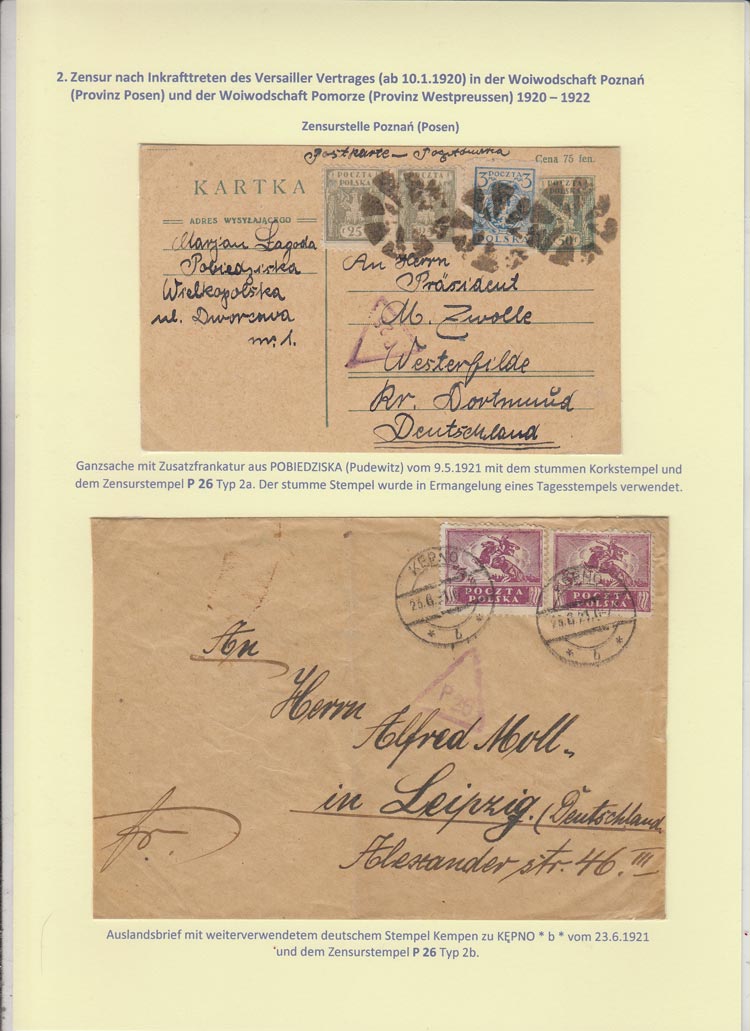 2. Zensur nach Inkrafttreten des Versailler Vertrages (ab 10.1.1920) in der Woiwodschaft Poznań
(Provinz Posen) und der Woiwodschaft Pomorze (Provinz Westpreussen) 1920 – 1922
Zensurstelle Poznań (Posen)
Postkarte – Pocztówka
Cena 75 fen.
KARTKA
ADRES WYSYŁAJĄCEGO
POCZTA POLSKA 25
POCZTA POLSKA 25
3 POCZTA 3 POLSKA
POCZTA POLSKA
Marjan Łagoda
Pobiedziska
Wielkopolska
ul. Dworcowa
nr. 1.
An Herrn
Präsident
M. Zwolle
Westerfilde
Kr. Dortmund
Deutschland
Ganzsache mit Zusatzfrankatur aus POBIEDZISKA (Pudewitz) vom 9.5.1921 mit dem stummen Korkstempel und
dem Zensurstempel P 26 Typ 2a. Der stumme Stempel wurde in Ermangelung eines Tagesstempels verwendet.
POCZTA POLSKA
POCZTA POLSKA
KĘPNO
* b *
KĘPNO
* b *
P 26
An
Herrn
Alfred Moll
in Leipzig. (Deutschland
Alexander str. 46. III
fr.
Auslandsbrief mit weiterverwendetem deutschem Stempel Kempen zu KĘPNO * b * vom 23.6.1921
und dem Zensurstempel P 26 Typ 2b.